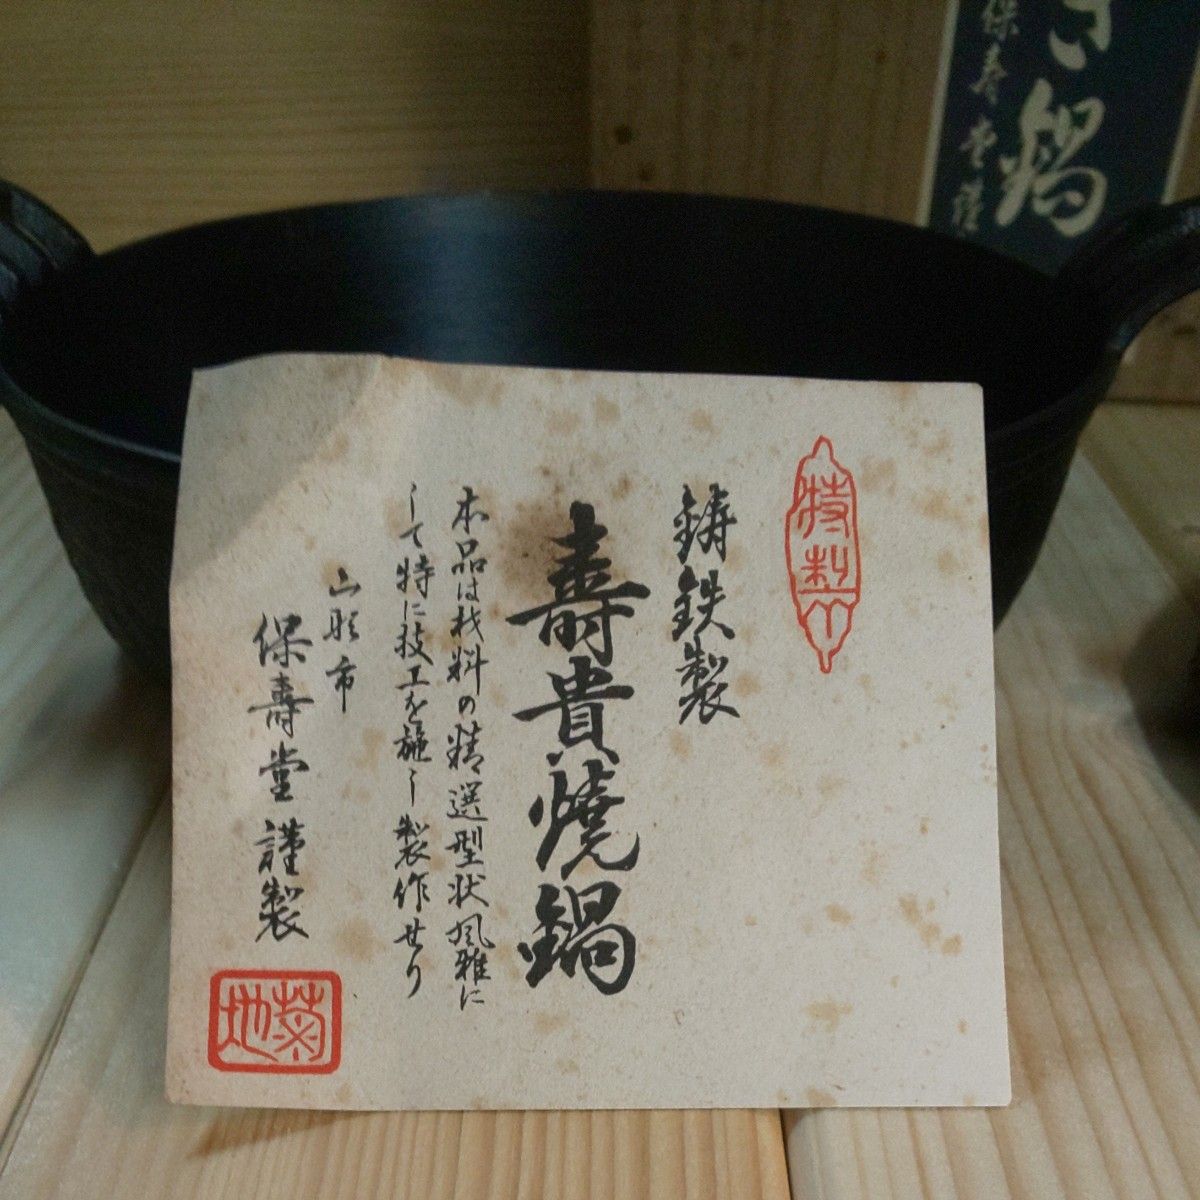 特製
鋳鉄製
壽貴焼鍋
本品は材料の精選型状風雅に
して特に技工を施し製作せり
山形市
保壽堂謹製
菊地
き鍋
保寿堂謹